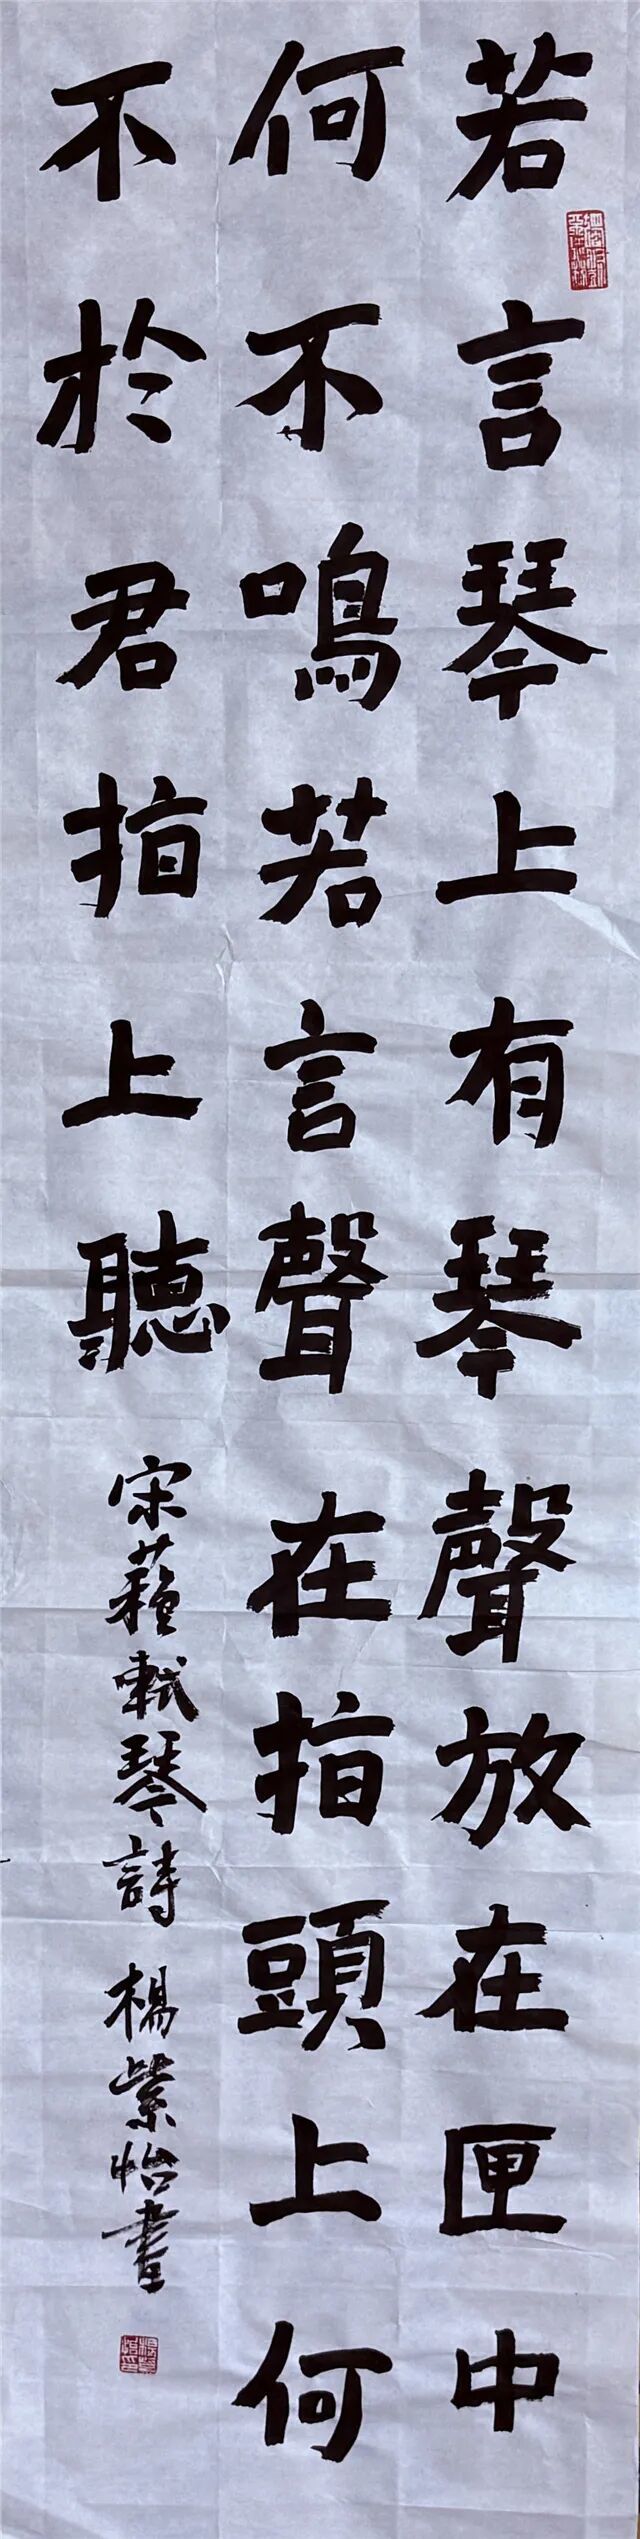 若言琴上有琴聲放在匣中
何不鳴若言聲在指頭上何
不於君指上聽
宋蘇軾琴詩 楊紫怡書